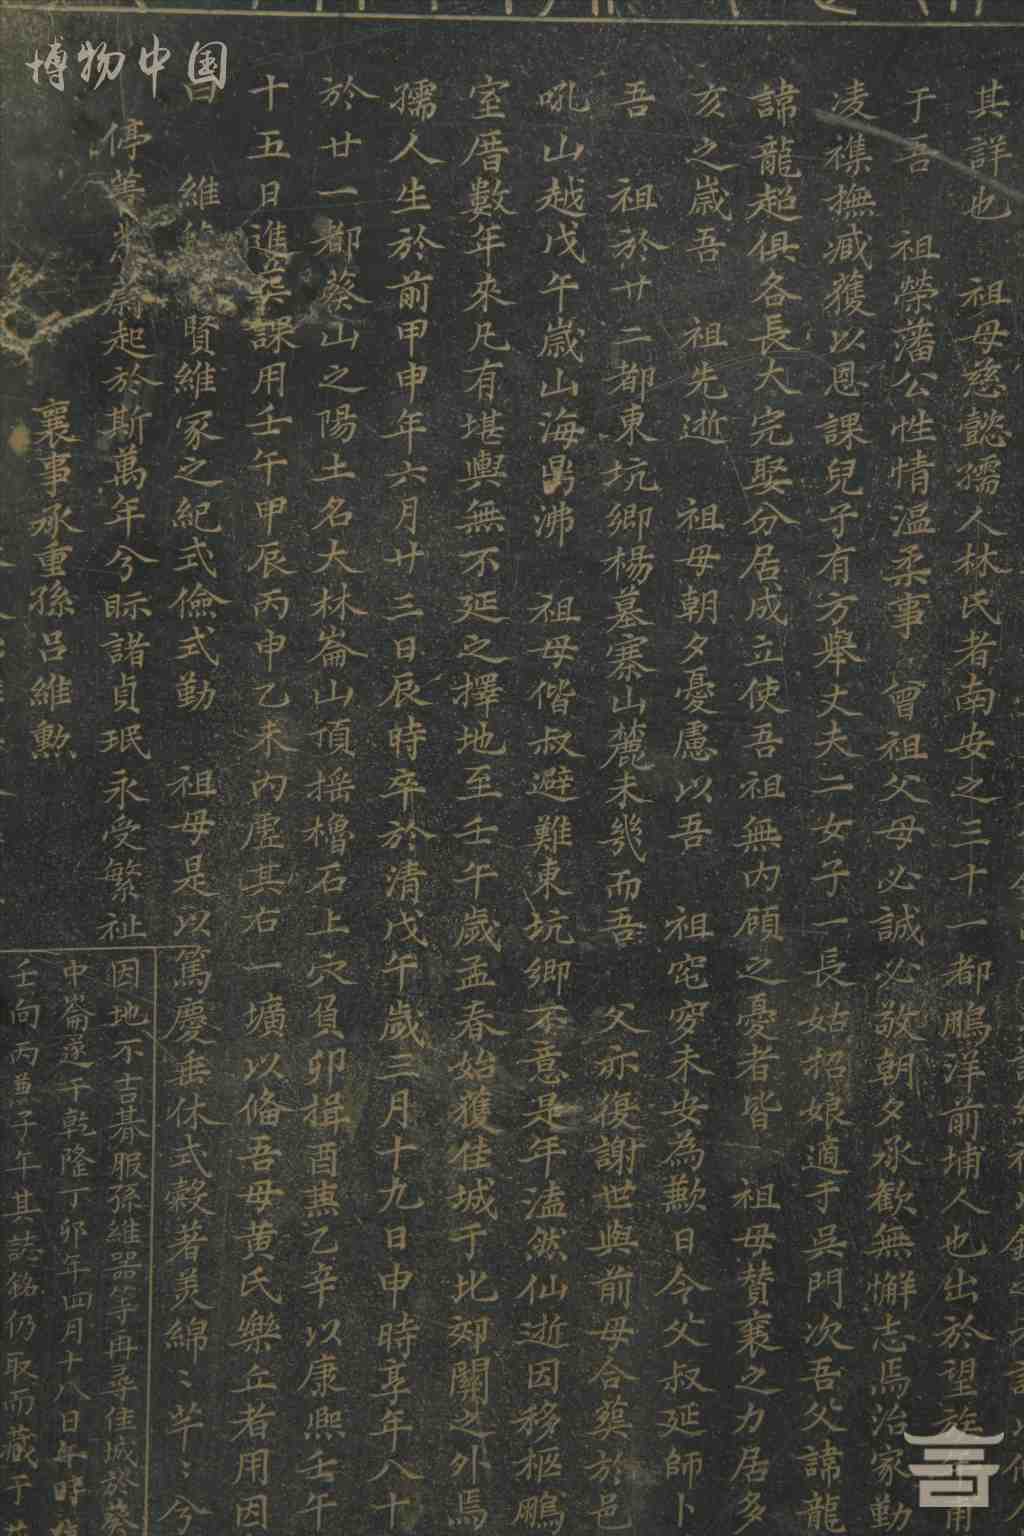 博物中国
其詳也 祖母慈懿孺人林氏者南安之三十一都鵬洋前埔人也出於望族
于吾 祖榮藩公性情温柔事 曾祖父母必誠必敬朝夕承歡無懈志焉治家勤
凌襍撫臧獲以恩課兒子有方舉丈夫二女子一長姑招娘適于吳門次吾父諱龍
諱龍超俱各長大完娶分居成立使吾祖無内顧之憂者皆 祖母贊襄之力居多
亥之歲吾 祖先逝 祖母朝夕憂慮以吾 祖窀穸未安為歉日令父叔延師卜
吾 祖於廿二都東坑鄉楊墓寨山麓未幾而吾 父亦復謝世與前母合葬於邑
吼山越戊午歲山海鼎沸 祖母偕叔避難東坑鄉不意是年溘然仙逝因移柩鵬
室厝數年來凡有堪輿無不延之擇地至壬午歲孟春始獲佳城于北郊關之外焉
孺人生於前甲申年六月廿三日辰時卒於清戊午歲三月十九日申時享年八十
於廿一都葵山之陽土名大林崙山頂搖櫓石上穴負卯揖酉兼乙辛以康熙壬午
十五日進葬課用壬午甲辰丙申乙未内虛其右一壙以俻吾母黄氏樂丘者用因
曰 維 賢維冢之紀式儉式勤 祖母是以篤慶垂休式穀著美綿〻芊〻兮
停 起於斯萬年兮眎諸貞珉永受繁祉
襄事承重孫吕維勲
因地不吉朞服孫維器等再尋佳城於葵
中崙遂于乾隆丁卯年四月十八日年時
壬向丙兼子午其誌銘仍取而藏于